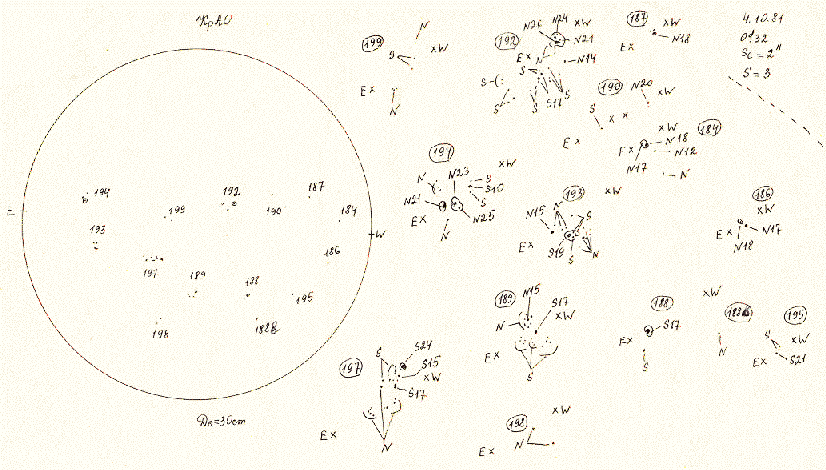 КрАО
4.10.81
S = 3
194
199
192
187
190
184
193
W
186
191
189
188
195
198
188Б
199
N
S
xW
Ex
N
192
N26
N24
xW
N21
N
Ex
N14
S
S
S
S
S
187
xW
Ex
N18
190
N20
xW
S
Ex
184
xW
N18
N12
Ex
N17
N
191
N
N23
xW
S
S
Ex
N25
N
193
xW
N15
S
Ex
S19
S
N
186
xW
Ex
N17
N18
189
N15
S17
xW
N
Ex
S
188
xW
Ex
S17
S
N
195
S
xW
Ex
S21
197
S
S24
S15
xW
S17
S
Ex
N
198
xW
N
Ex